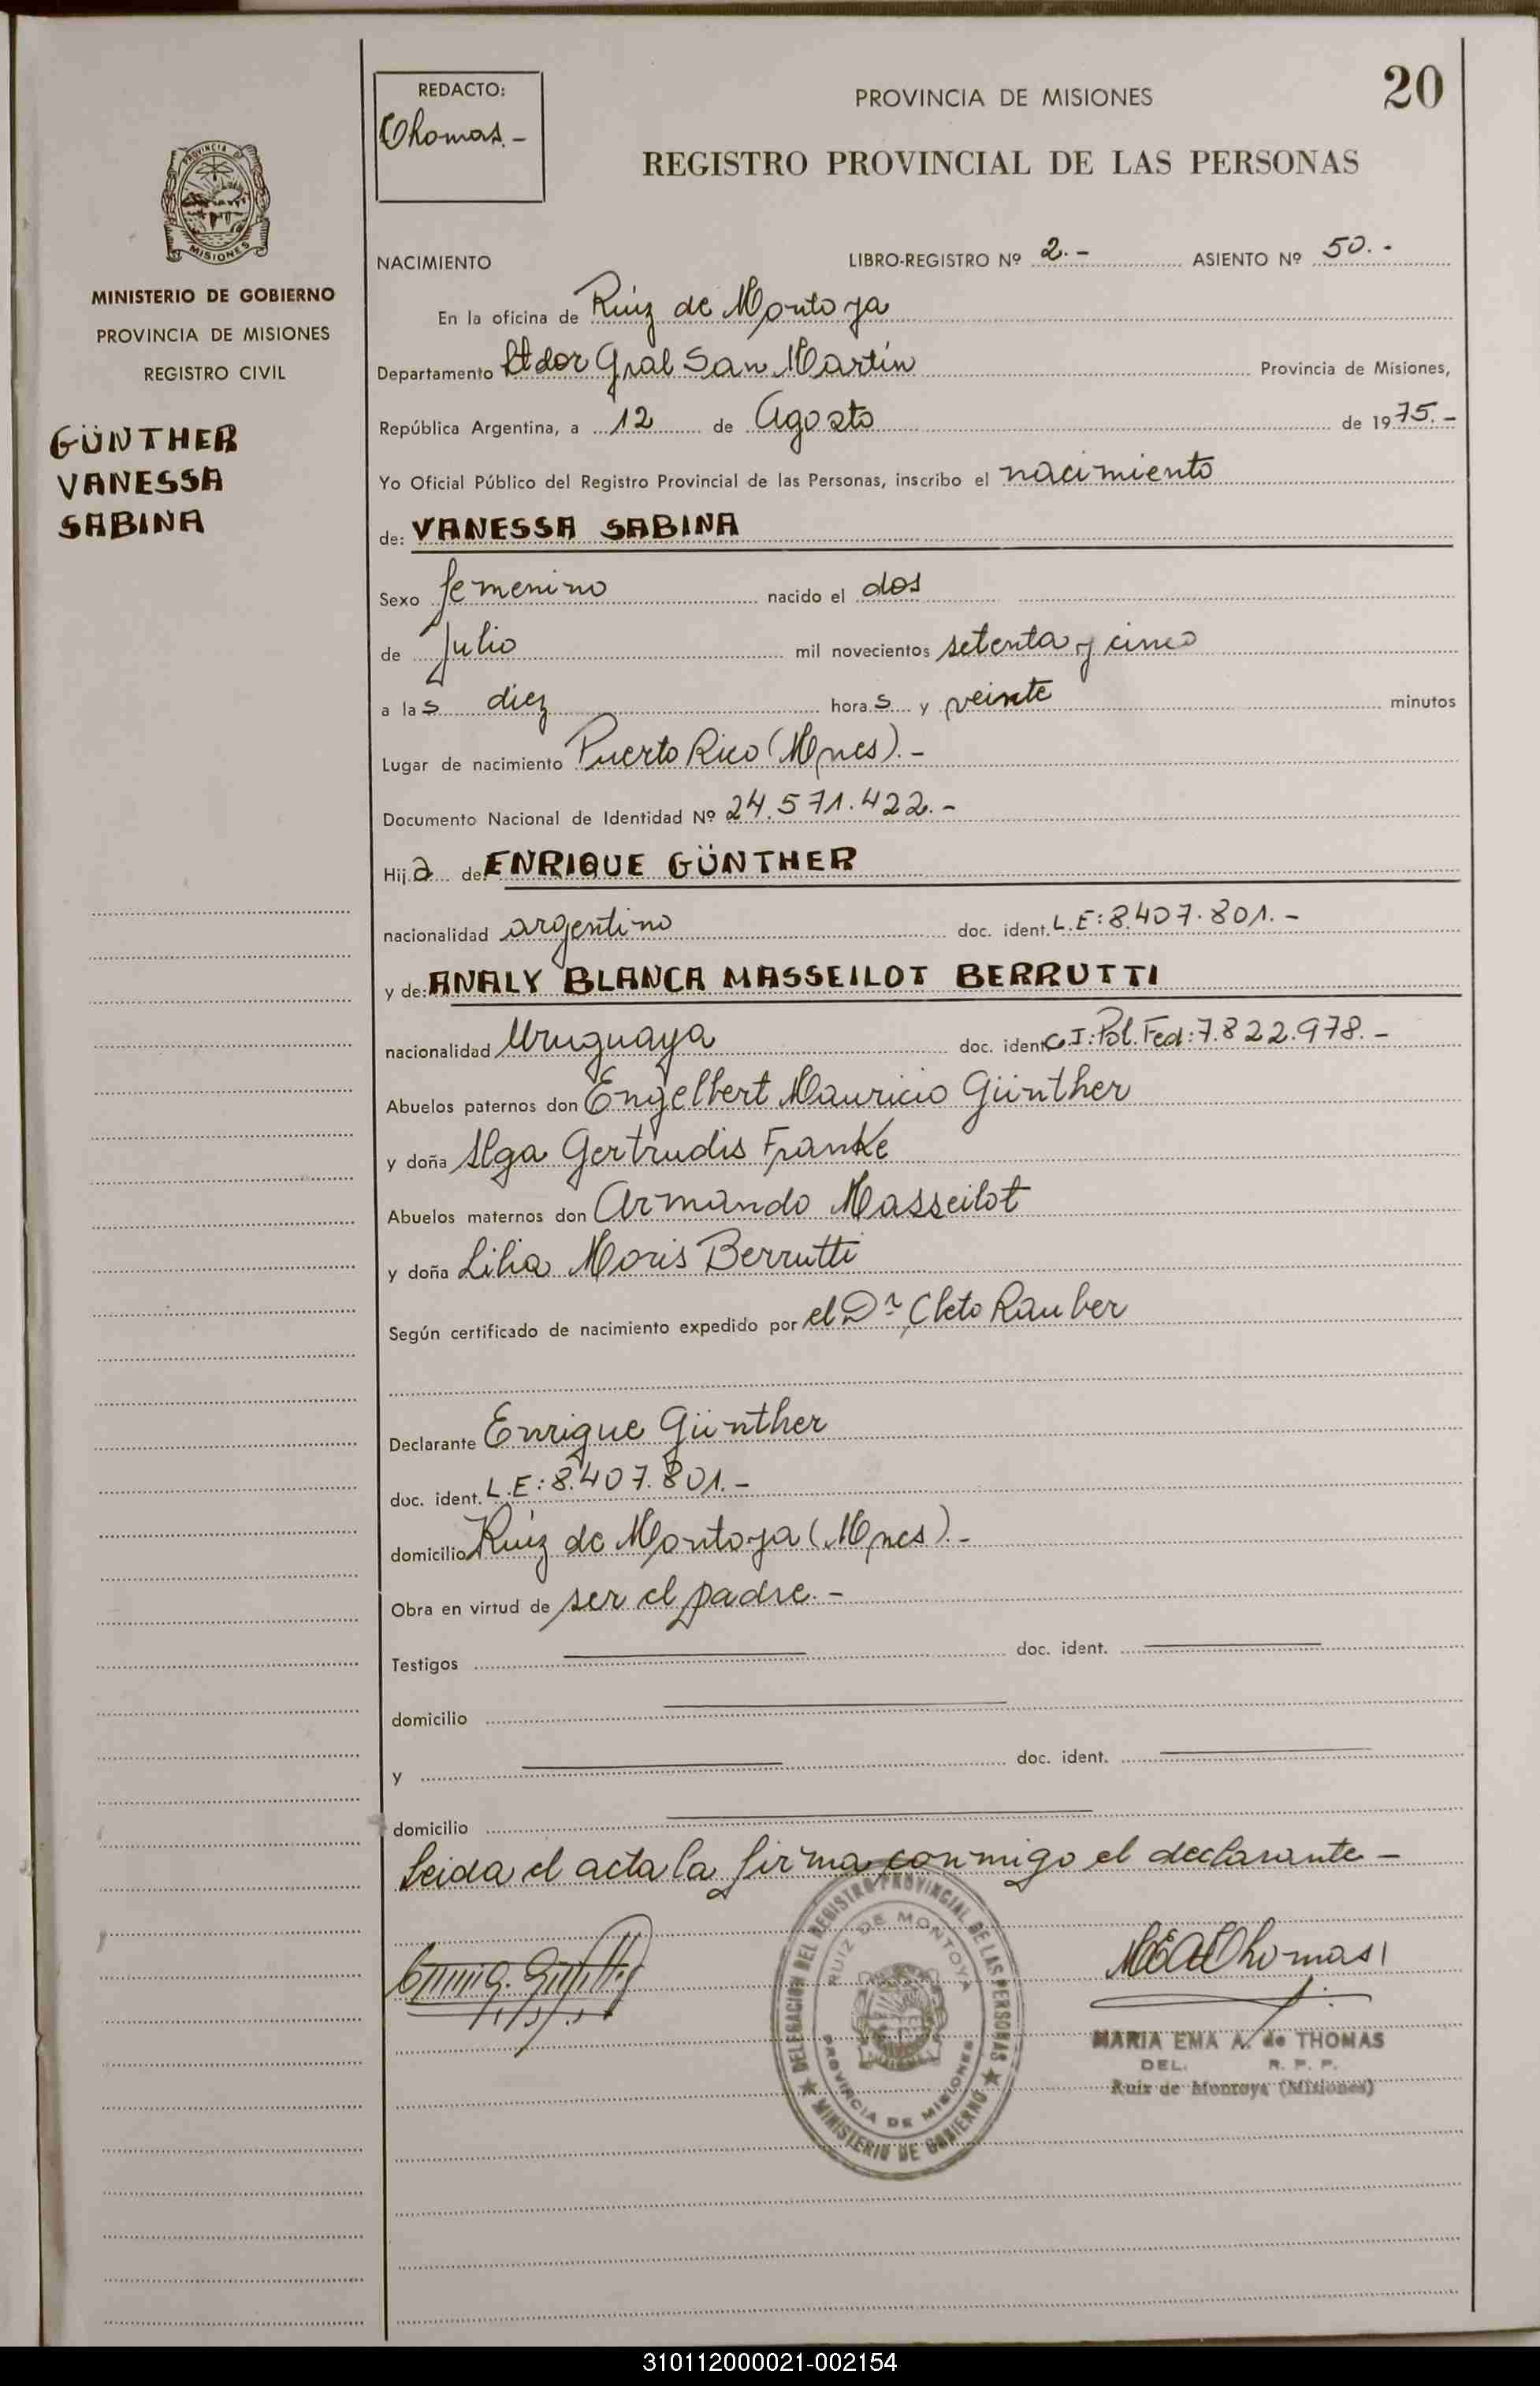 REDACTO:
Thomas.-
20
PROVINCIA DE MISIONES
REGISTRO PROVINCIAL DE LAS PERSONAS
PROVINCIA DE
MISIONES
MINISTERIO DE GOBIERNO
PROVINCIA DE MISIONES
REGISTRO CIVIL
GÜNTHER
VANESSA
SABINA
NACIMIENTO LIBRO-REGISTRO Nº 2.- ASIENTO Nº 50.-
En la oficina de Ruiz de Montoya
Departamento Ltdor Gral San Martín Provincia de Misiones,
República Argentina, a 12 de Agosto de 1975.-
Yo Oficial Público del Registro Provincial de las Personas, inscribo el nacimiento
de: VANESSA SABINA
Sexo femenino nacido el dos
de Julio mil novecientos setenta y cinco
a las diez horas y veinte minutos
Lugar de nacimiento Puerto Rico (Mnes).-
Documento Nacional de Identidad Nº 24.571.422.-
Hija de: ENRIQUE GÜNTHER
nacionalidad argentino doc. ident. L.E: 8.407.801.-
y de: ANALY BLANCA MASSEILOT BERRUTTI
nacionalidad Uruguaya doc. ident. C.I: Pol. Fed: 7.822.978.-
Abuelos paternos don Engelbert Mauricio Günther
y doña Ilga Gertrudis Franke
Abuelos maternos don Armando Masseilot
y doña Lilia Moris Berrutti
Según certificado de nacimiento expedido por el Dr. Cleto Rauber
Declarante Enrique Günther
doc. ident. L.E: 8.407.801.-
domicilio Ruiz de Montoya (Mnes).-
Obra en virtud de ser el padre.-
Testigos doc. ident.
domicilio
y doc. ident.
domicilio
Leida el acta la firma conmigo el declarante-
DELEGACION DEL REGISTRO PROVINCIAL DE LAS PERSONAS
RUIZ DE MONTOYA
PROVINCIA DE MISIONES
MINISTERIO DE GOBIERNO
MEAdeThomas
MARIA EMA A. de THOMAS
DEL. R. P. P.
Ruiz de Montoya (Misiones)
310112000021-002154